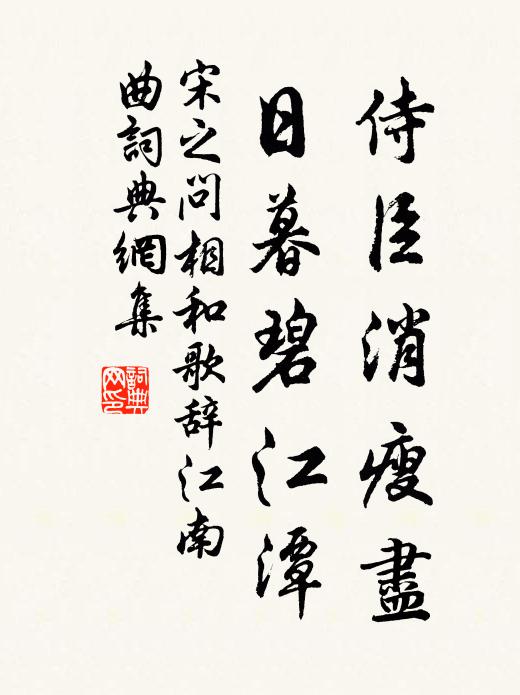 侍臣消瘦盡
日暮碧江潭
宋之问相和歌辞江南
曲詞典網集
詞典
网印